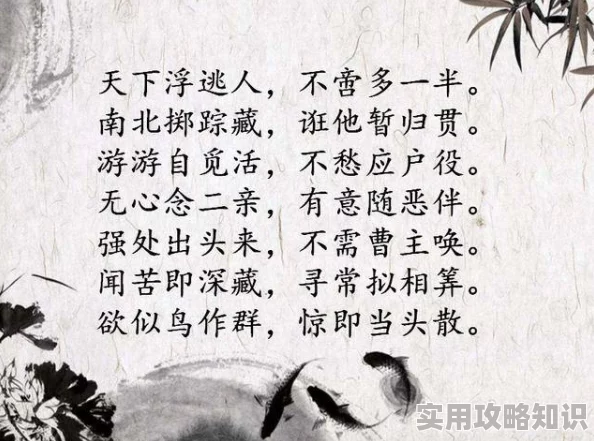 天下浮逃人，不啻多一半。
南北掷踪藏，诳他暂归贯。
游游自觅活，不愁应户役。
无心念二亲，有意随恶伴。
强处出头来，不需曹主唤。
闻苦即深藏，寻常拟相筭。
欲似鸟作群，惊即当头散。
实用攻略知识